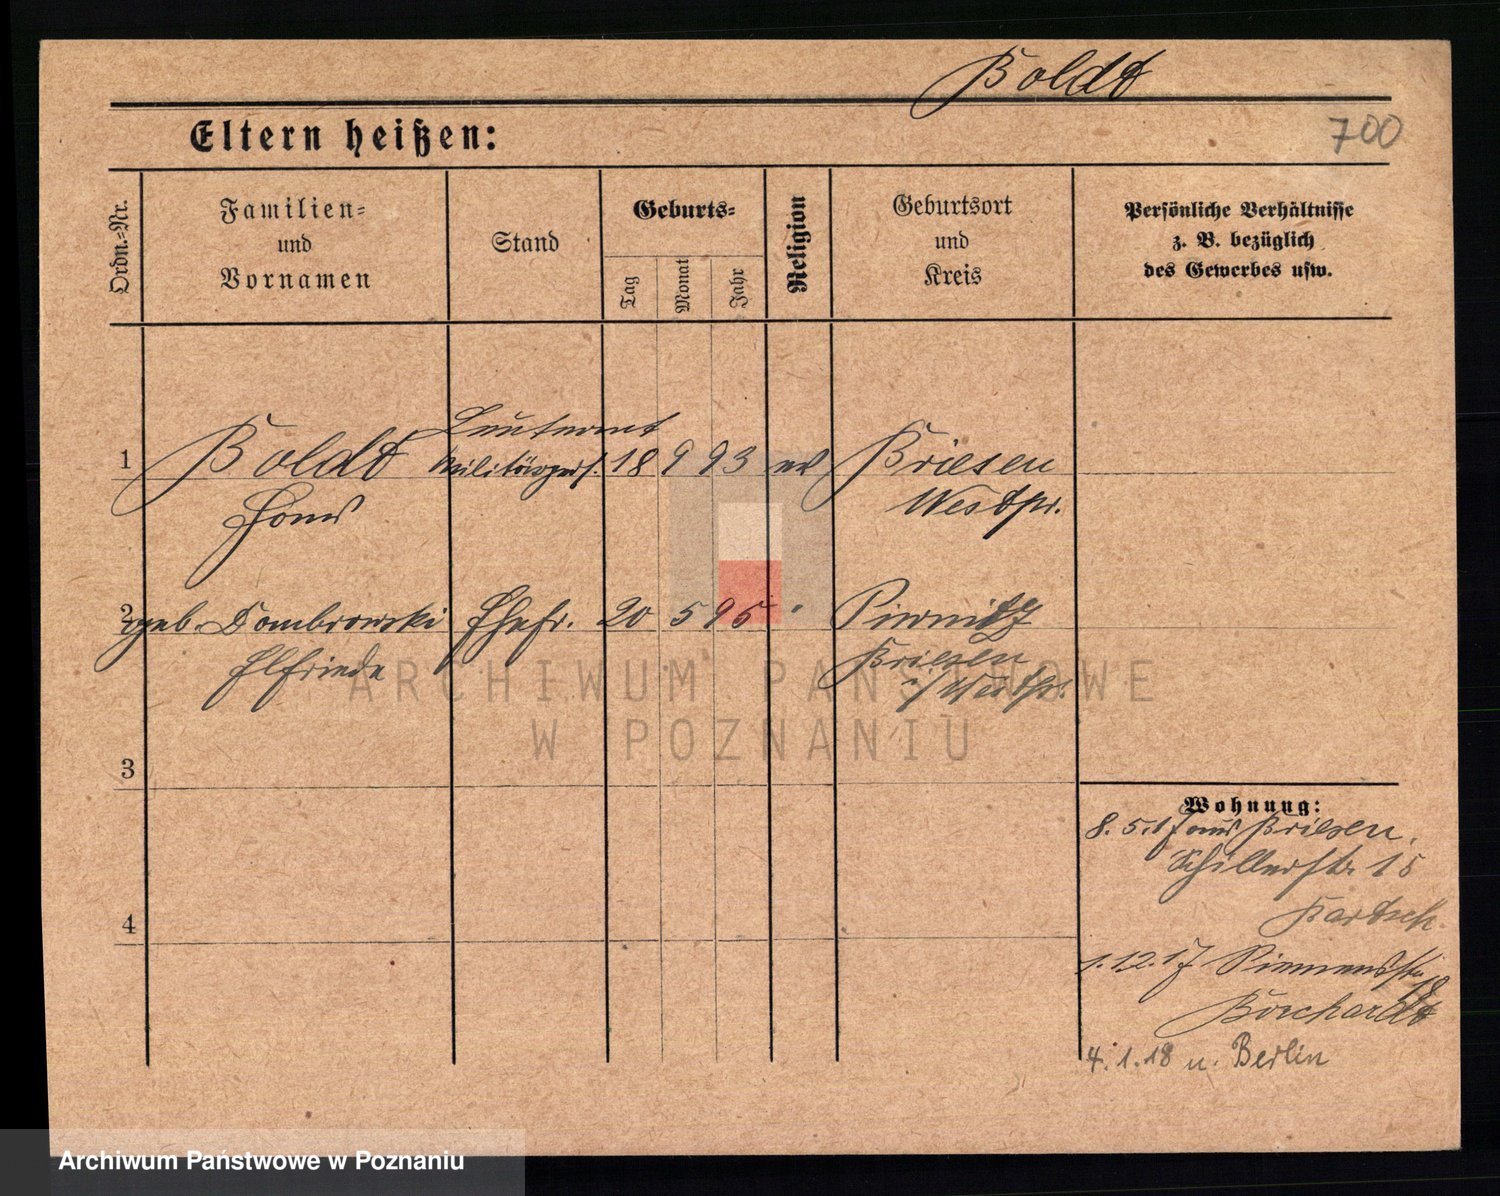 Boldt
700
Eltern heißen:
Ordn.-Nr.
Familien-
und
Vornamen
Stand
Geburts-
Tag
Monat
Jahr
Religion
Geburtsort
und
Kreis
Persönliche Verhältnisse
z. B. bezüglich
des Gewerbes usw.
Leutnant
1 Boldt 18 9 93 Briesen
Hans Westpr.
2 geb. Dombrowski Ehefr. 20 5 95 "
Elfriede Briesen
i/Westpr.
3
4
Wohnung:
8. 5. 17 aus Briesen.
Schillerstr. 15
Bartsch
1. 12. 17
Borchardt
4. 1. 18 n. Berlin
ARCHIWUM PAŃSTWOWE
W POZNANIU
Archiwum Państwowe w Poznaniu